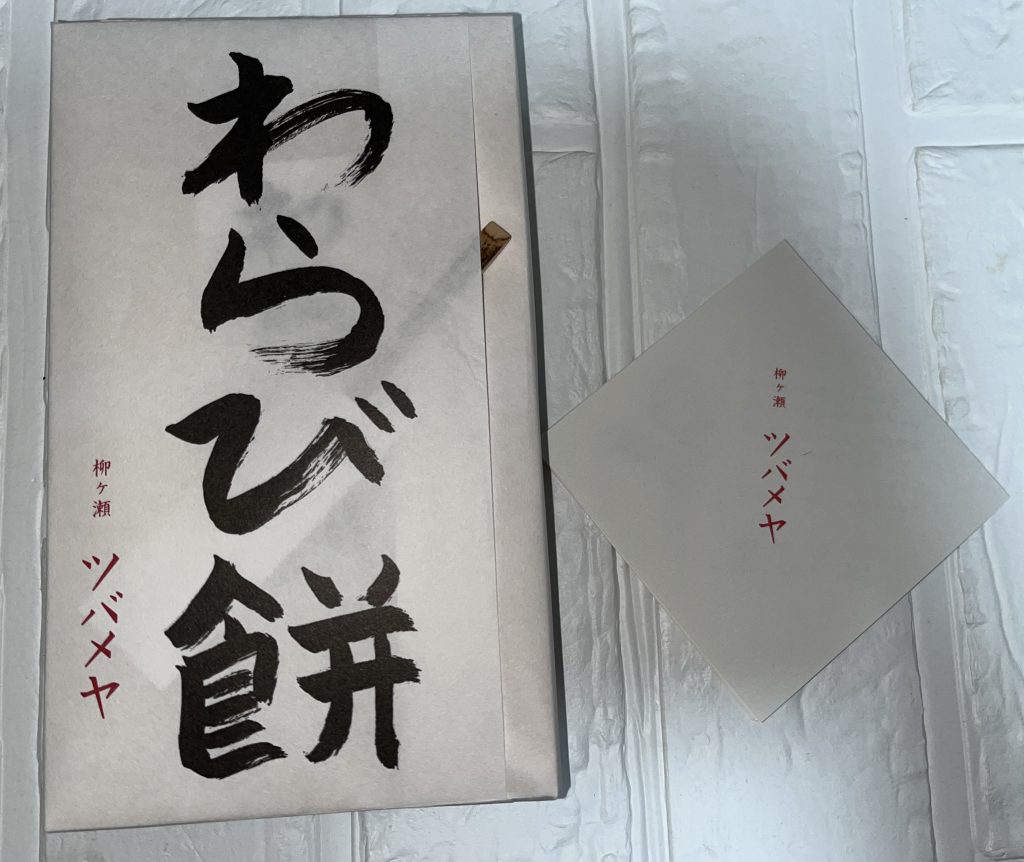 わらび餅
柳ヶ瀬
ツバメヤ
柳ヶ瀬
ツバメヤ